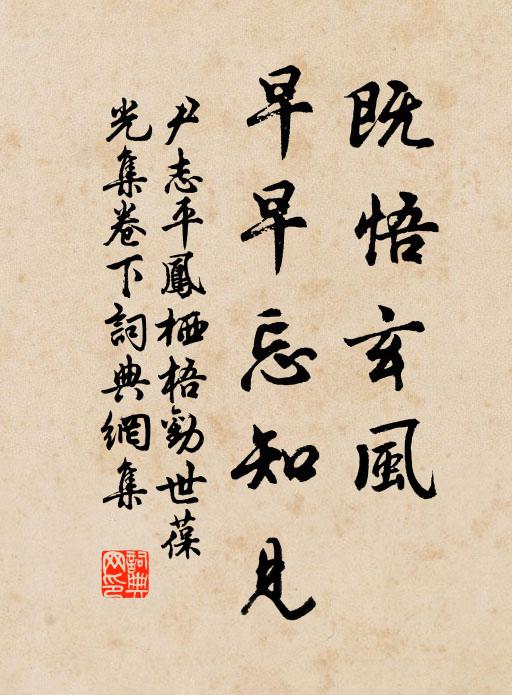 既悟玄風
早早忘知見
尹志平鳳栖梧勸世葆
光集卷下詞典網集
詞典
网印